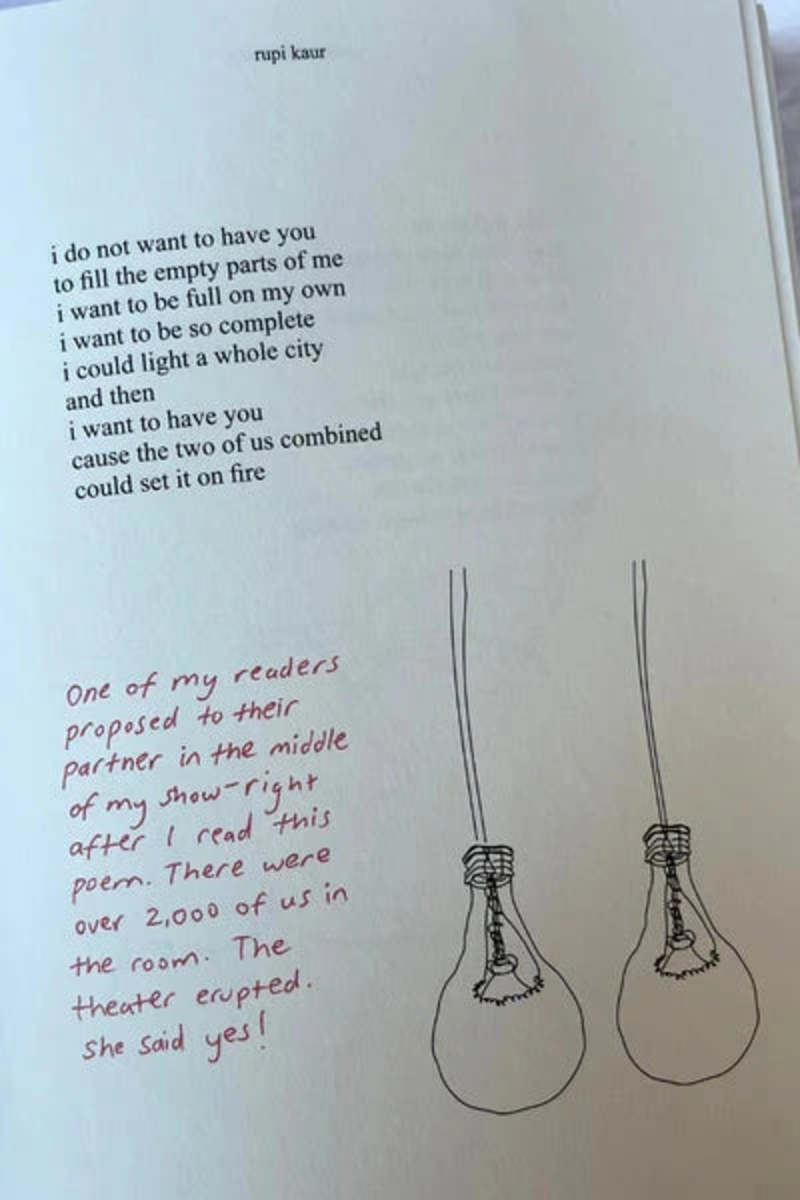 rupi kaur
i do not want to have you
to fill the empty parts of me
i want to be full on my own
i want to be so complete
i could light a whole city
and then
i want to have you
cause the two of us combined
could set it on fire
One of my readers
proposed to their
partner in the middle
of my show-right
after I read this
poem. There were
over 2,000 of us in
the room. The
theater erupted.
She said yes!